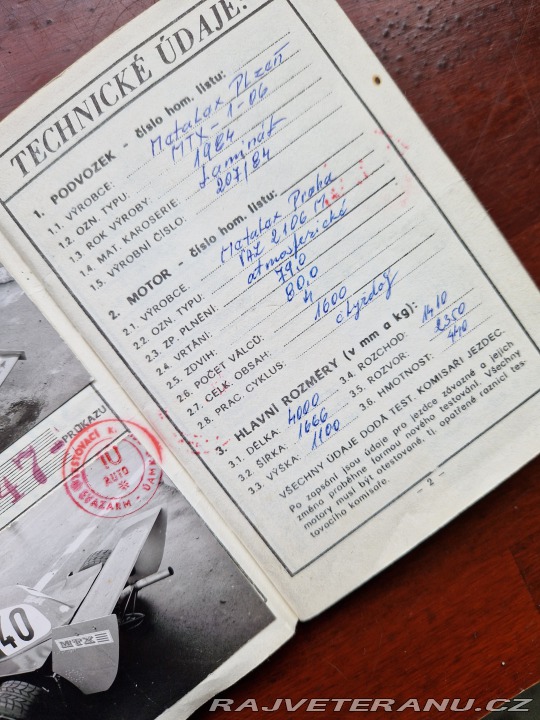 TECHNICKÉ ÚDAJE:
1. PODVOZEK - číslo hom. listu:
1.1. VÝROBCE: Metalex Plzeň
1.2. OZN. TYPU: MTX-1-06
1.3. ROK VÝROBY: 1984
1.4. MAT. KAROSERIE: Laminát
1.5. VÝROBNÍ ČÍSLO: 207/84
2. MOTOR - číslo hom. listu:
2.1. VÝROBCE: Metalex Praha
2.2. OZN. TYPU: VAZ 2106 M
2.3. ZP. PLNĚNÍ: atmosferické
2.4. VRTÁNÍ: 79,0
2.5. ZDVIH: 80,0
2.6. POČET VÁLCŮ: 4
2.7. CELK. OBSAH: 1600
2.8. PRAC. CYKLUS: čtyrdobý
3. HLAVNÍ ROZMĚRY (v mm a kg):
3.1. DÉLKA: 4000 3.4. ROZCHOD: 1410
3.2. ŠÍRKA: 1666 3.5. ROZVOR: 2350
3.3. VÝŠKA: 1100 3.6. HMOTNOST: 440
VŠECHNY ÚDAJE DODÁ TEST. KOMISAŘI JEZDEC.
Po zapsání jsou údaje pro jezdce závazné a jejich
změna proběhne formou nového testování. Všechny
motory musí být otestované, tj. opatřené raznicí tes-
tovacího komisaře.
- 2 -
PRŮKAZU
47-
TESTOVACÍ K.
10
AUTO
SVAZARM
40
RAJVETERANU.CZ